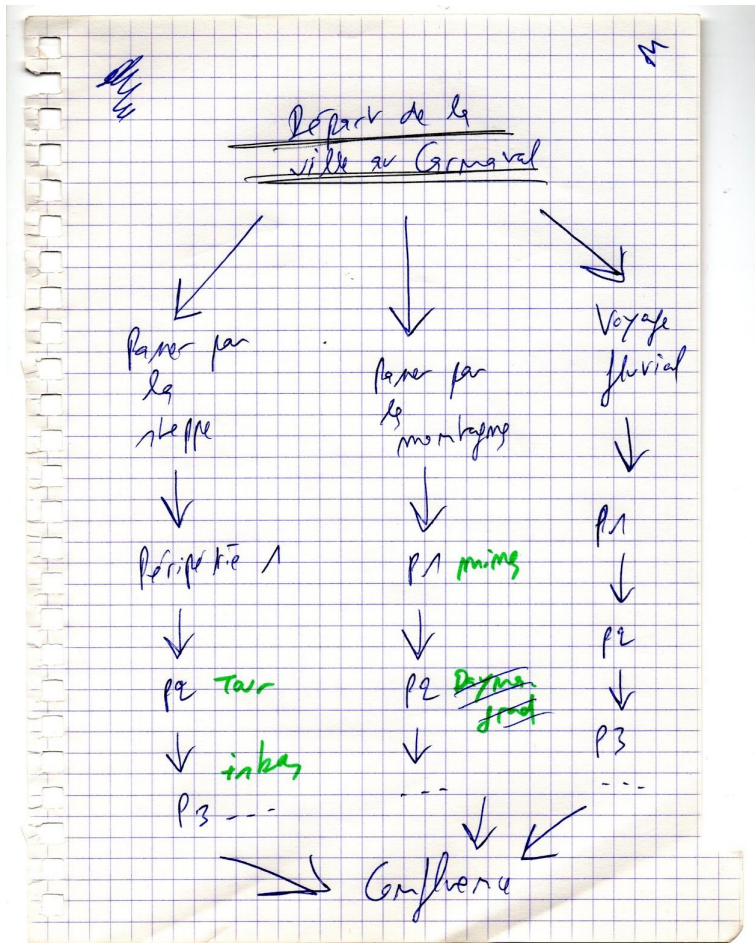 Départ de la
ville au Carnaval
Passer par
la
steppe
Péripétie 1
P2 Tour
P3 ---
Passer par
la
montagne
P1 mine
P2
---
Voyage
fluvial
P1
P2
P3
---
Confluence